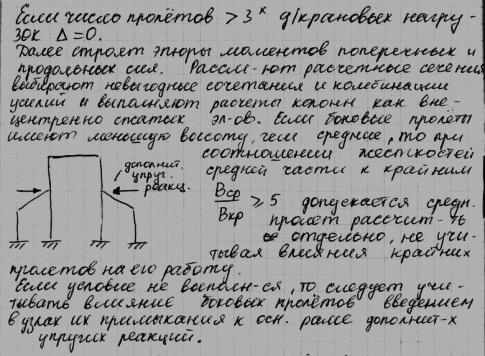 Если число пролётов ≥ 3х д/крановых нагру-
зок Δ=0.
Далее строят эпюры моментов поперечных и
продольных сил. Рассм-ют расчетные сечения
выбирают невыгодные сочетания и комбинации
усилий и выполняют расчеты колонн как вне-
центренно сжатых эл-ов. Если боковые пролёты
имеют меньшую высоту, чем средние, то при
соотношении жесткостей
средней части к крайним
дополнит.
упруг.
реакц.
Bср/Bкр ≥ 5 допускается средн.
пролет рассчит-ть
отдельно, не учи-
тывая влияния крайних
пролетов на его работу.
Если условие не выполн-ся, то следует учи-
тывать влияние боковых пролётов введением
в узлах их примыкания к осн. раме дополнит-х
упругих реакций.